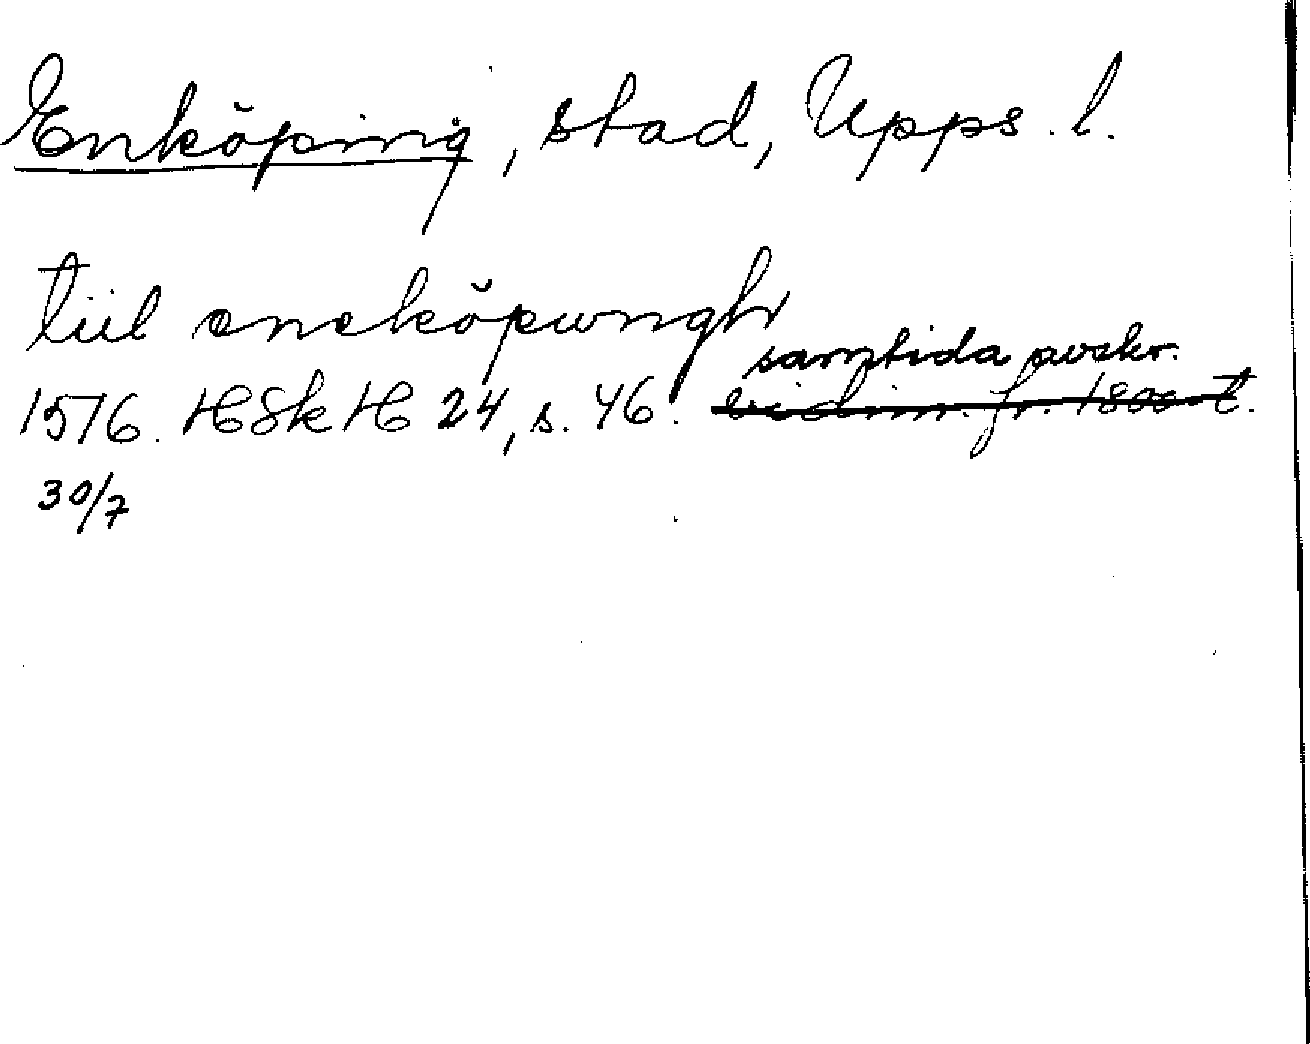 Enköping, stad, Upps. l.
tiil eneköpungh
samtida avskr.
1576. HSkH 24, s. 46. vidim. fr. 1800-t.
30/7